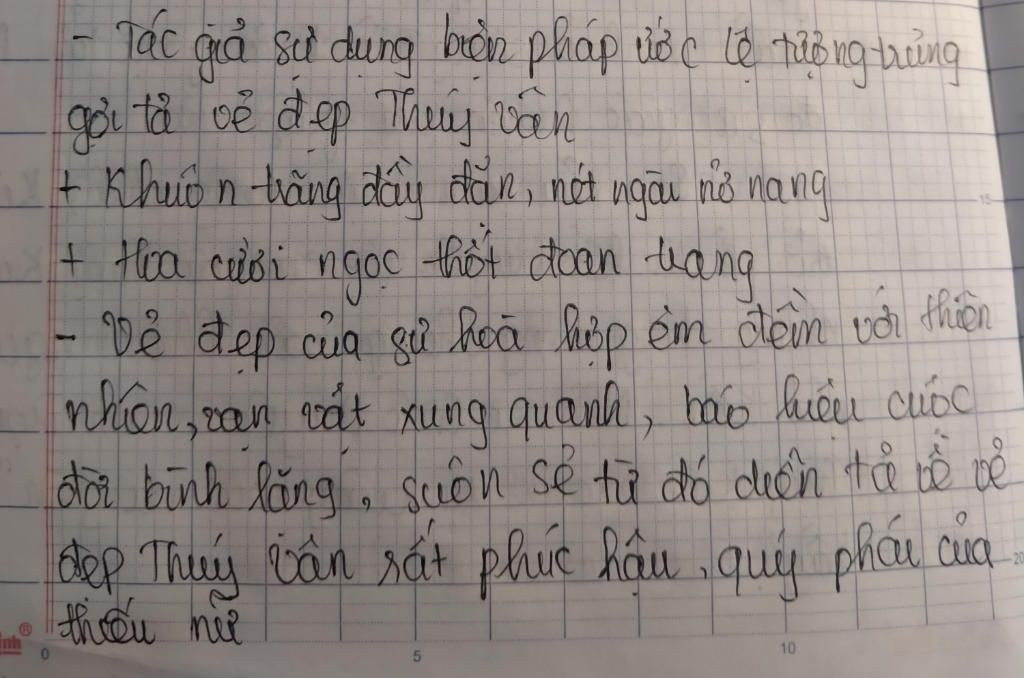 - Tác giả sử dụng biện pháp ước lệ tượng trưng
gợi tả vẻ đẹp Thúy Vân
+ Khuôn trăng đầy đặn, nét ngài nở nang
+ Hoa cười ngọc thốt đoan trang
- Vẻ đẹp của sự hoà hợp êm đềm với thiên
nhiên, vạn vật xung quanh, báo hiệu cuộc
đời bình lặng, suôn sẻ từ đó diễn tả về vẻ
đẹp Thúy Vân rất phúc hậu, quý phái của
thiếu nữ
inh®
0 5 10
15
20